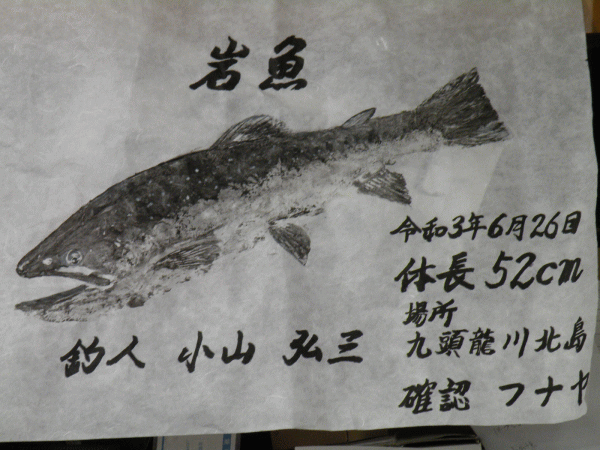 岩魚
令和3年6月26日
体長 52cm
場所
九頭龍川北島
確認 フナヤ
釣人 小山 弘三